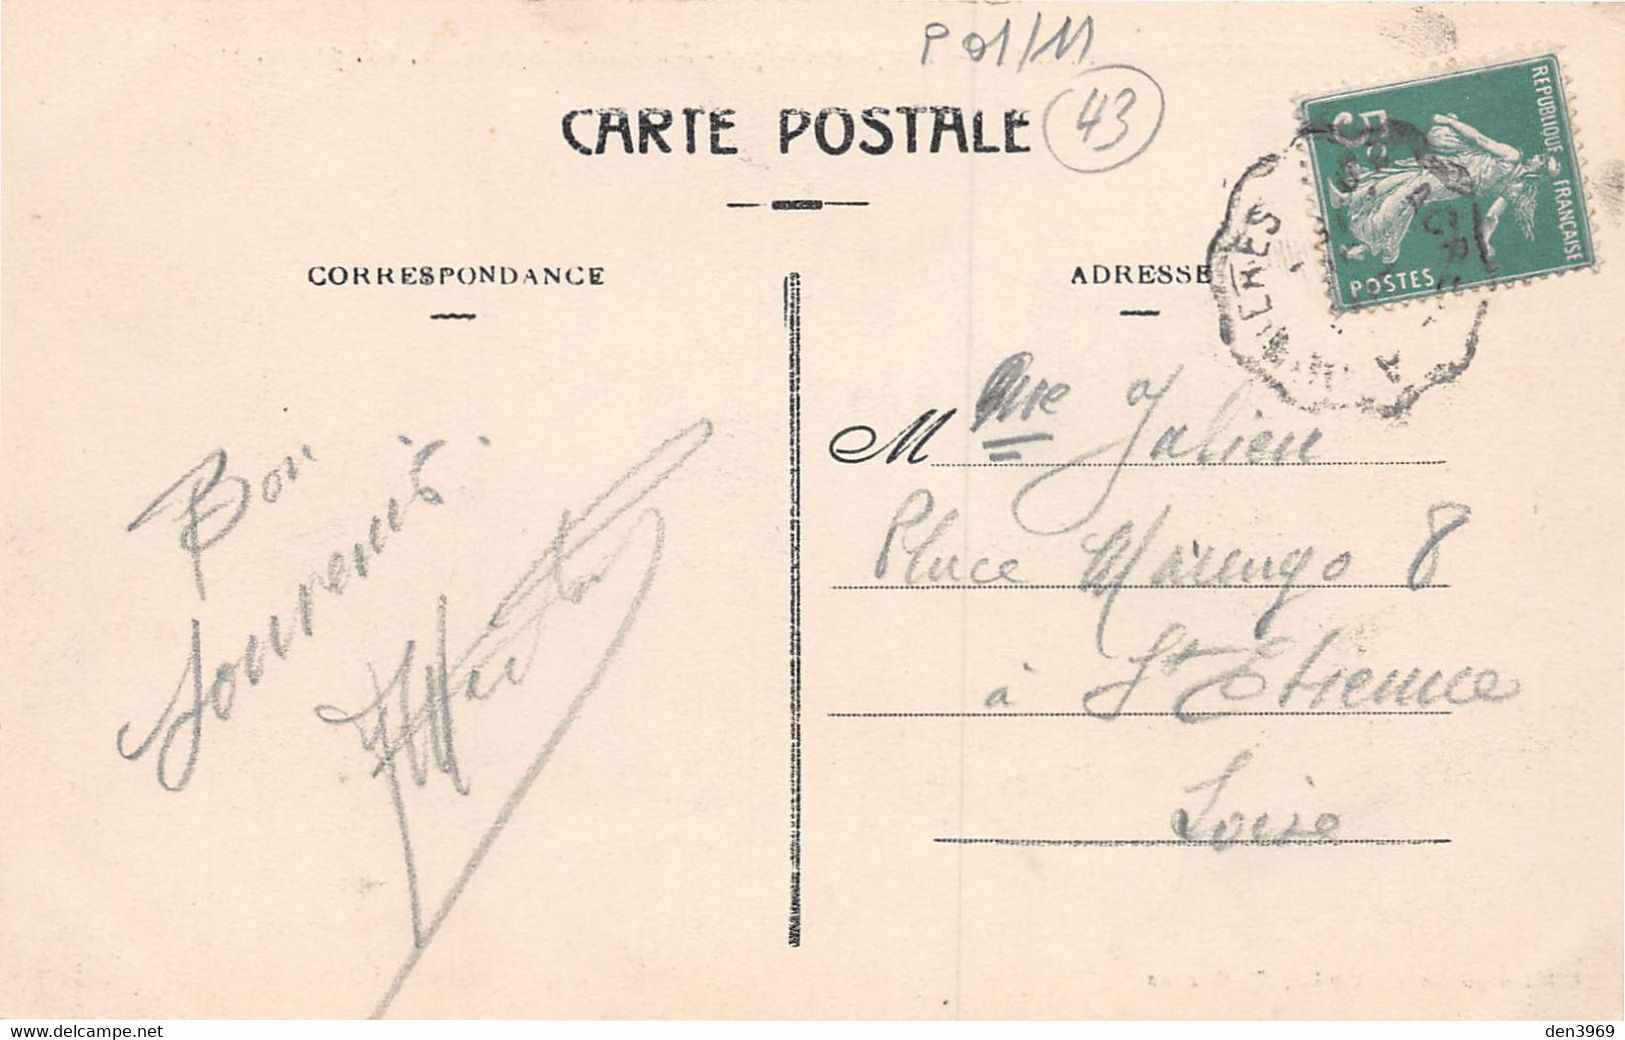 P 01/11
CARTE POSTALE 43
REPUBLIQUE FRANÇAISE
POSTES
CORRESPONDANCE
ADRESSE
Bon
souvenir.
M me Julien
Place Marengo 8
à St Etienne
Loire
www.delcampe.net
den3969